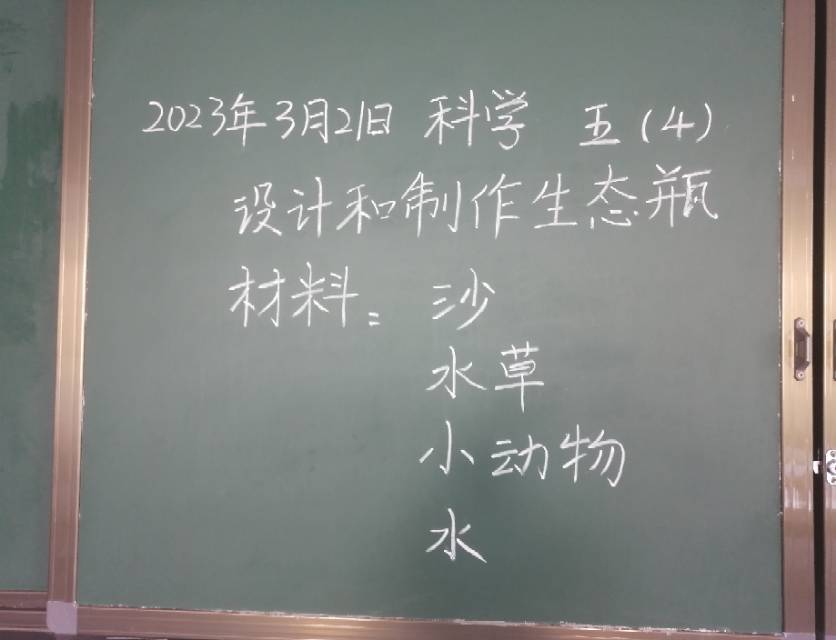 2023年3月21日 科学 五(4)
设计和制作生态瓶
材料: 沙
水草
小动物
水